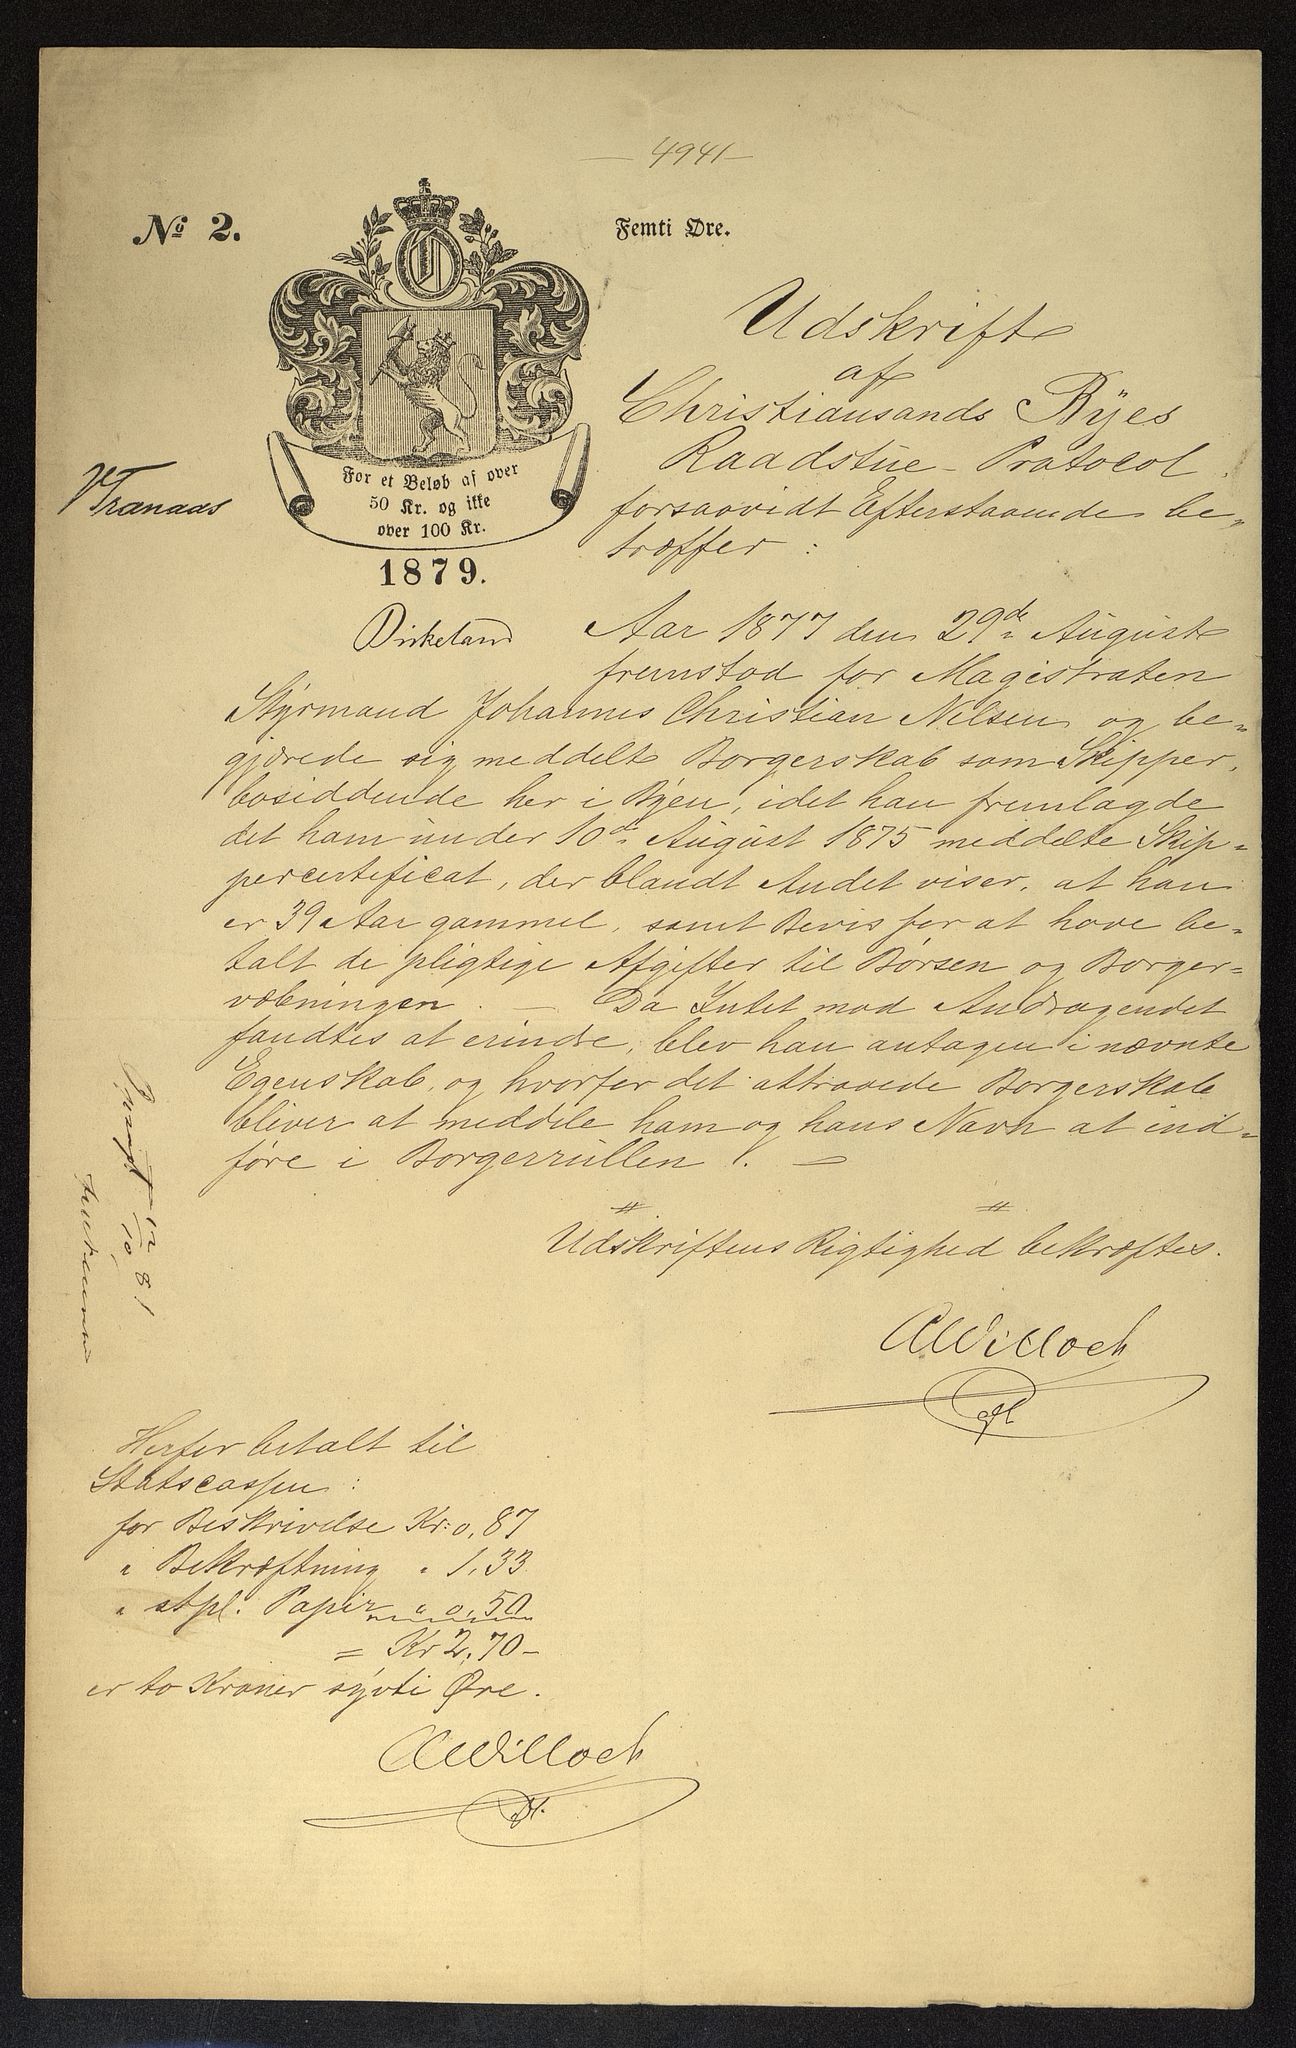 — 4941 —
No 2.
Femti Øre.
For et Beløb af over
50 Kr. og ikke
over 100 Kr.
1879.
VTranaas
Birkeland
Udskrift
af
Christiansands Byes
Raadstue-Protocol
forsaavidt Efterstaaende be-
træffer:
Aar 1877 den 29de August
fremstod for Magistraten
Styrmand Johannes Christian Nilsen og be-
gjærede sig meddelt Borgerskab som Skipper,
bosiddende her i Byen, idet han fremlagde
det ham under 10de August 1875 meddelte Skip-
percertificat, der blandt Andet viser, at han
er 39 Aar gammel, samt Bevis for at have be-
talt de pligtige Afgifter til Børsen og Borger-
væbningen. — Da Intet mod Andragendet
fandtes at erindre, blev han antagen i nævnte
Egenskab, og hvorfor det attraaede Borgerskab
bliver at meddele ham og hans Navn at ind-
føre i Borgerrullen. —
Udskriftens Rigtighed bekræftes.
AWilloch
12/10 81
Herfor betalt til
Statscassen:
for Beskrivelse Kr: 0,87
" Bekræftning " 1,33
" stpl. Papir " 0,50
= Kr 2,70 -
er to Kroner sytti Øre.
AWilloch